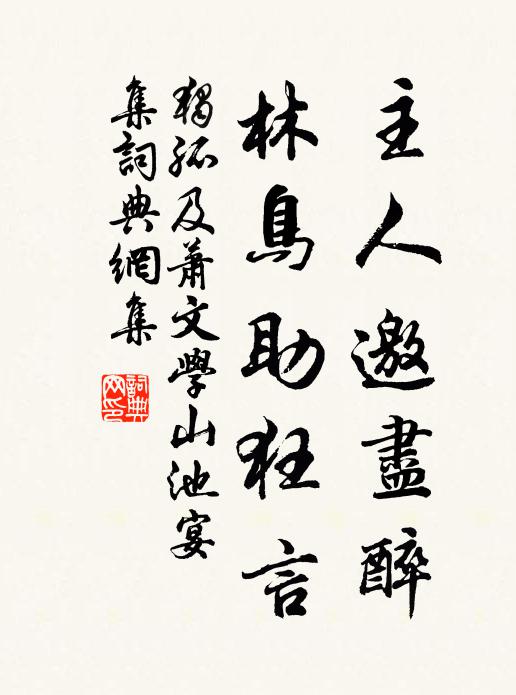 主人邀盡醉
林鳥助狂言
獨孤及蕭文學山池宴
集詞典網集
詞典
网印